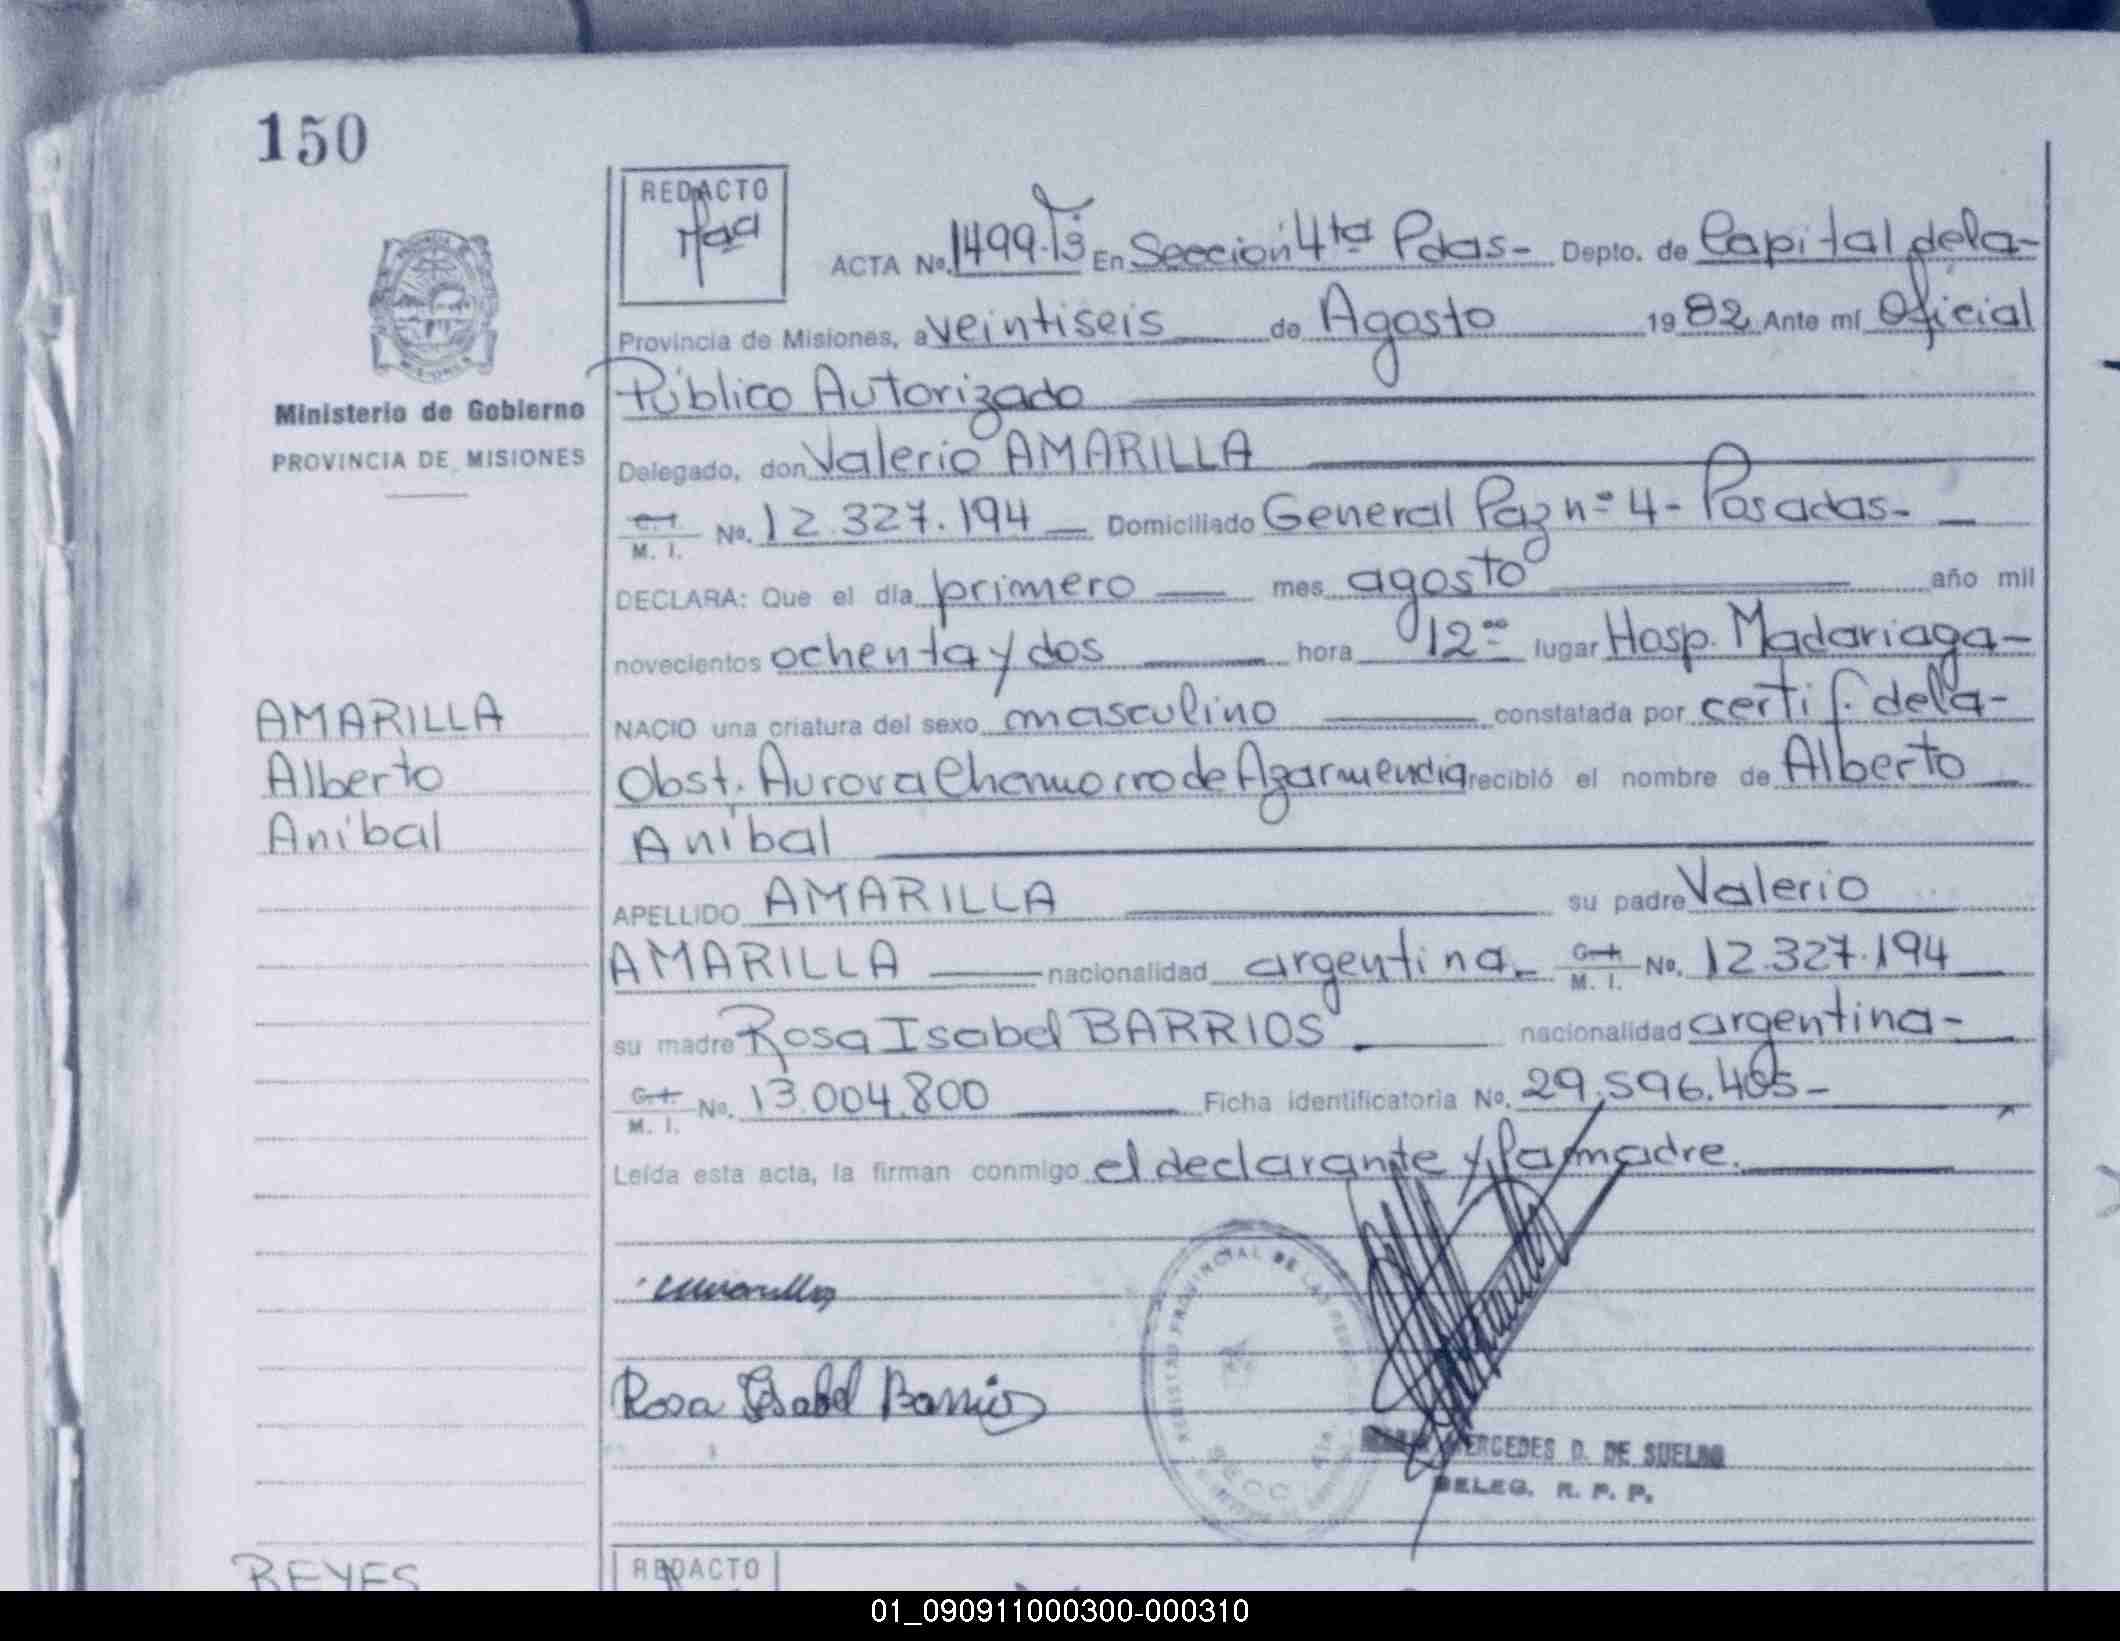 150
REDACTO
ACTA No. 1499. En Sección 4ta Pdas - Depto. de Capital de la -
Provincia de Misiones, a veintiseis de Agosto 1982 Ante mí Oficial
Público Autorizado
Ministerio de Gobierno
PROVINCIA DE MISIONES
Delegado, don Valerio AMARILLA
C.I. M. I. No. 12.327.194 Domiciliado General Paz nº 4 - Posadas -
DECLARA: Que el día primero mes agosto año mil
novecientos ochenta y dos hora 12 lugar Hosp. Madariaga -
AMARILLA
Alberto
Aníbal
NACIO una criatura del sexo masculino constatada por certif. de la -
Obst. Aurora Chamorro de Azarmendia recibió el nombre de Alberto
Aníbal
APELLIDO AMARILLA su padre Valerio
AMARILLA nacionalidad argentina - C.I. M. I. No. 12.327.194
su madre Rosa Isabel BARRIOS nacionalidad argentina -
C.I. M. I. No. 13.004.800 Ficha identificatoria No. 29.596.405 -
Leída esta acta, la firman conmigo el declarante y la madre.
Rosa Isabel Barrios
REGISTRO PROVINCIAL DE LAS
MERCEDES D. DE SUELDO
DELEG. R. P. P.
REYES
REDACTO
01_090911000300-000310